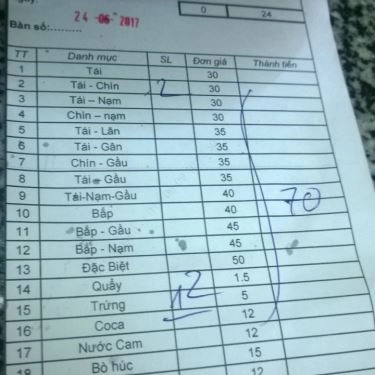 24 -06- 2017
0 24
Bàn số:
TT Danh mục SL Đơn giá Thành tiền
1 Tái 30
2 Tái - Chín 2 30
3 Tái – Nạm 30
4 Chín – nạm 30
5 Tái - Lăn 35
6 Tái - Gân 35
7 Chín - Gầu 35
8 Tái – Gầu 35
9 Tái-Nạm-Gầu 40 70
10 Bắp 40
11 Bắp - Gầu 45
12 Bắp - Nạm 45
13 Đặc Biệt 50
14 Quẩy 12 1.5
15 Trứng 5
16 Coca 12
17 Nước Cam 12
18 Bò húc 15
12